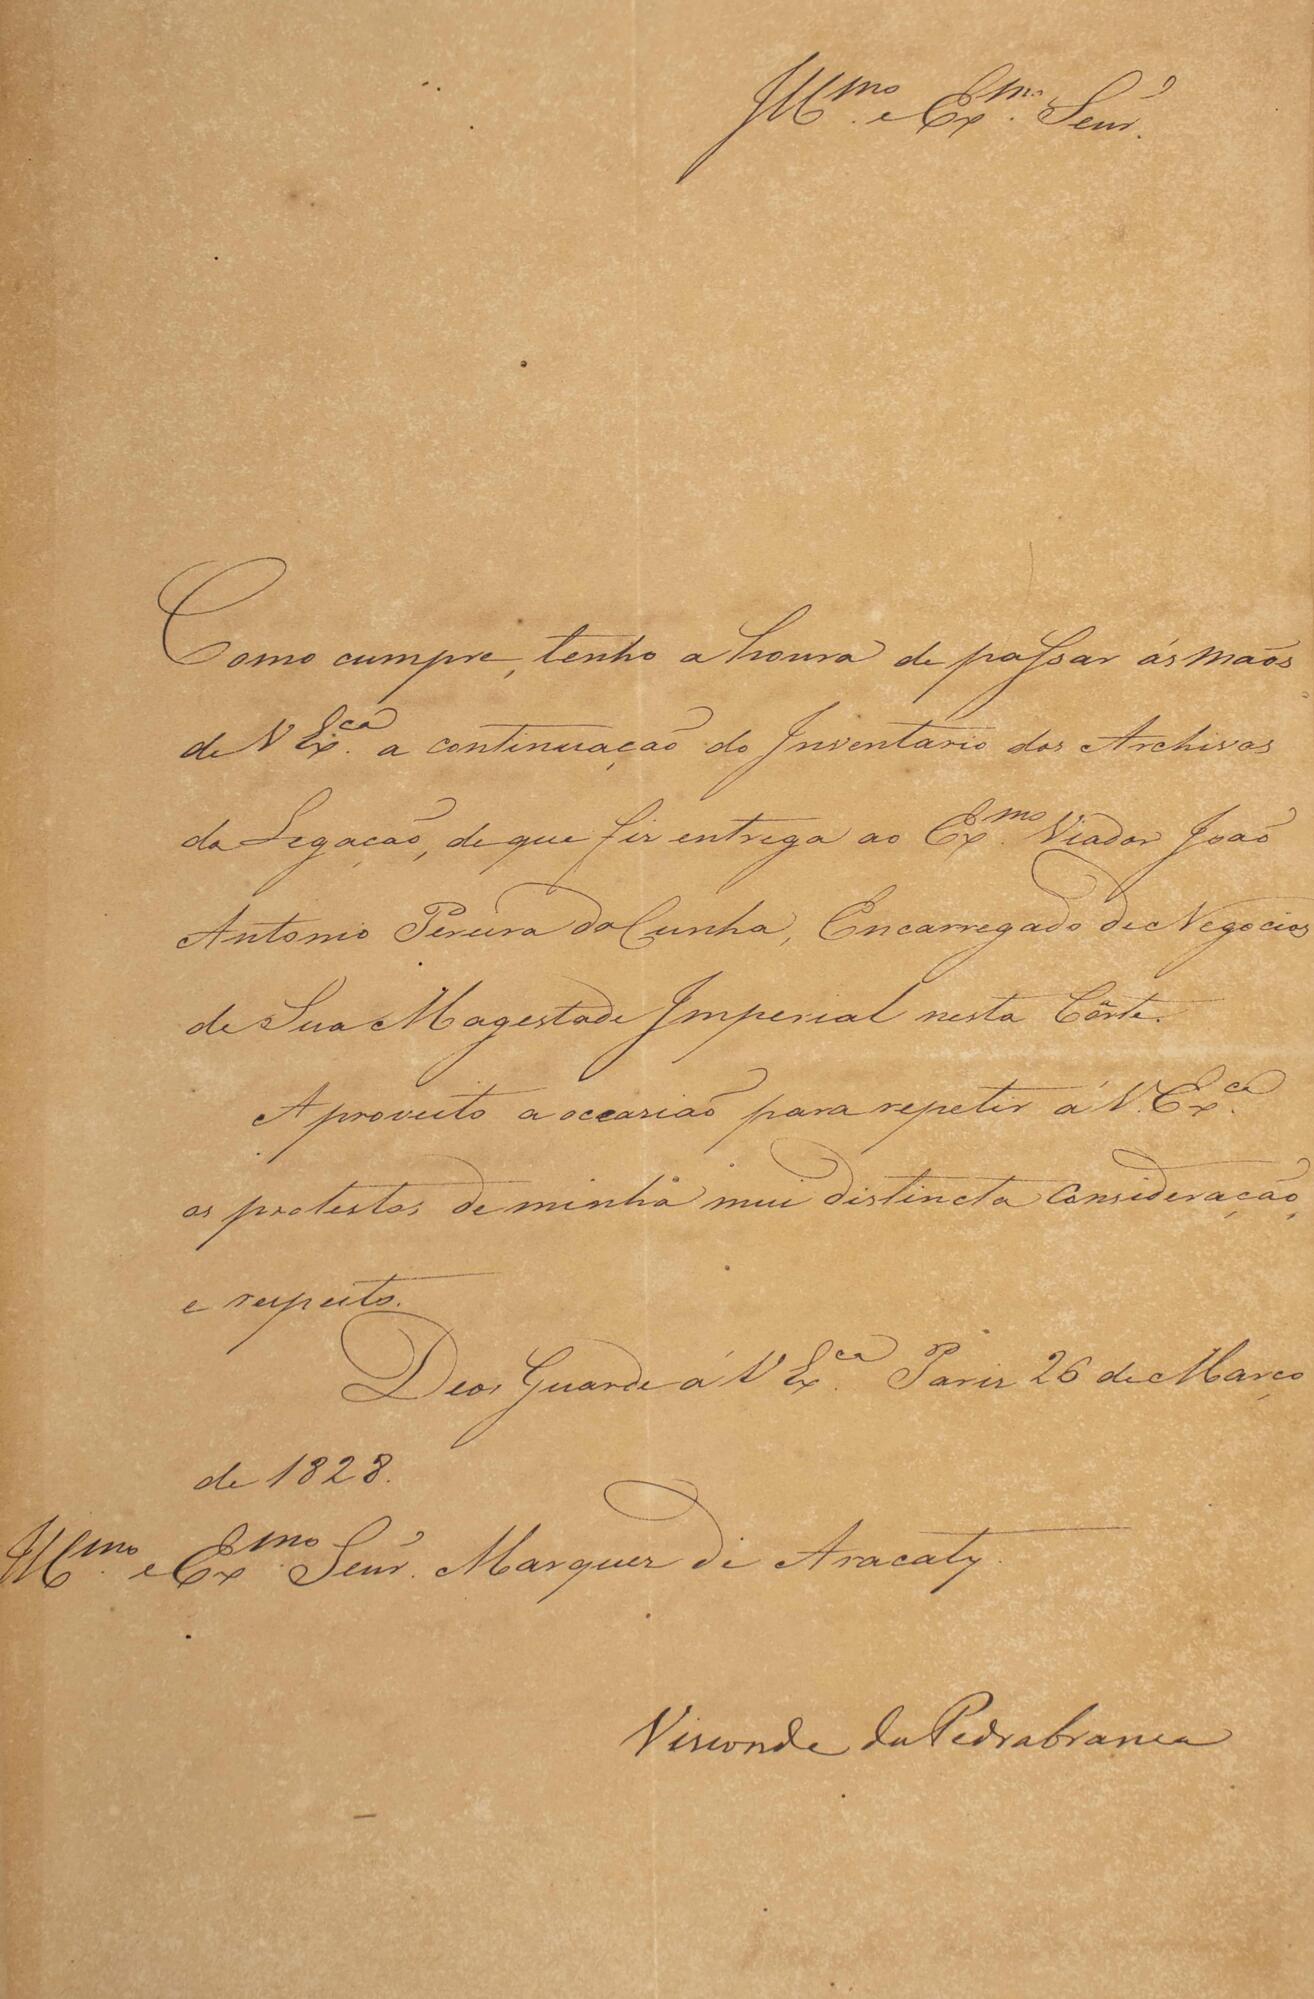 Ill.mo e Ex.mo Senr.
Como cumpre, tenho a honra de passar ás mãos
de V Ex.ca a continuação do Inventario dos Archivos
da Legação, de que fiz entrega ao Ex.mo Viador João
Antonio Pereira da Cunha, Encarregado de Negocios
de Sua Magestade Imperial nesta Côrte.
Aproveito a occasião para repetir á V. Ex.ca
os protestos de minha mui distincta consideração,
e respeito.
Deos Guarde á V Ex.ca Pariz 26 de Março
de 1828.
Ill.mo e Ex.mo Senr. Marquez de Aracaty.
Visconde da Pedrabranca